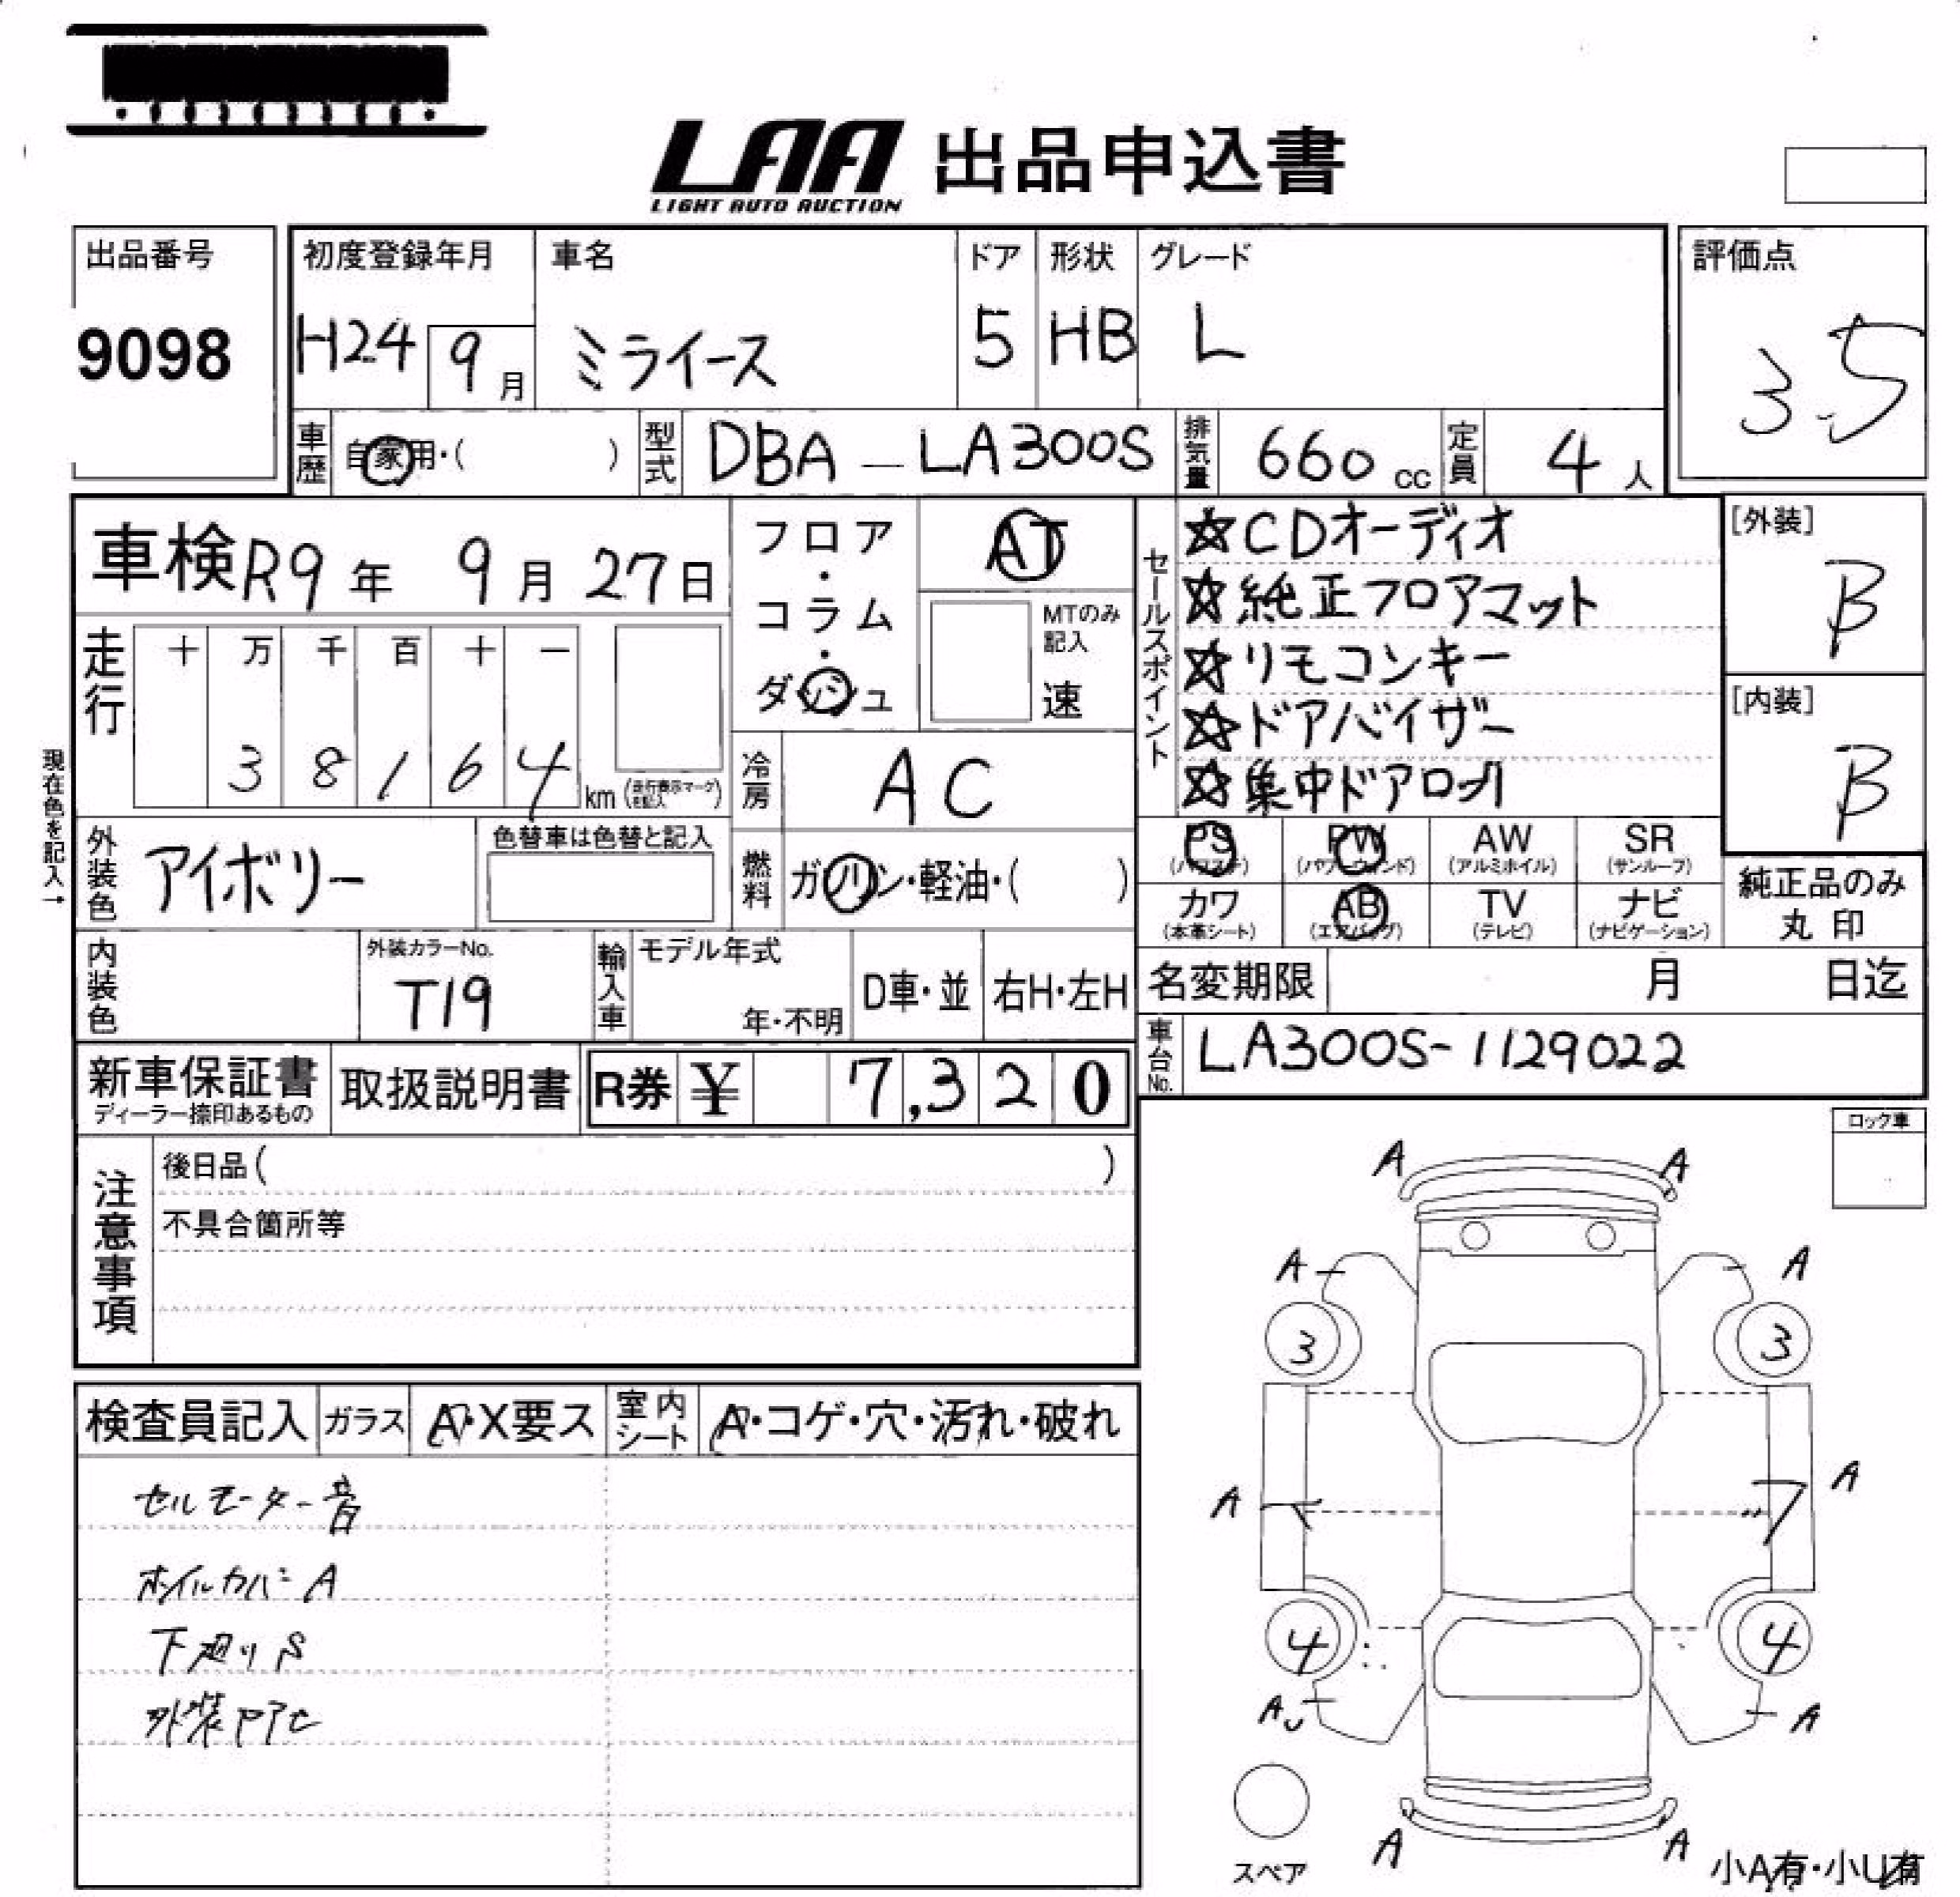 LAA 出品申込書
LIGHT AUTO AUCTION
出品番号
9098
初度登録年月
H24 9月
車名
ミライース
ドア
5
形状
HB
グレード
L
評価点
3.5
車歴 自家用・( )
型式 DBA-LA300S
排気量 660 cc
定員 4人
車検 R9年 9月 27日
フロア・コラム・ダッシュ
AT
MTのみ記入
速
セールスポイント
☆CDオーディオ
☆純正フロアマット
☆リモコンキー
☆ドアバイザー
☆集中ドアロック
[外装]
B
[内装]
B
走行
十 万 千 百 十 一
3 8 1 6 4 km (走行表示マークを記入)
冷房 AC
現在色を記入→
外装色 アイボリー
色替車は色替と記入
燃料 ガソリン・軽油・( )
PS (パワステ)
PW (パワーウィンド)
AW (アルミホイル)
SR (サンルーフ)
カワ (本革シート)
AB (エアバッグ)
TV (テレビ)
ナビ (ナビゲーション)
純正品のみ
丸印
内装色
外装カラーNo.
T19
輸入車
モデル年式
年・不明
D車・並
右H・左H
名変期限 月 日迄
車台No. LA300S-1129022
新車保証書
ディーラー捺印あるもの
取扱説明書
R券 ¥ 7,320
ロック車
注意事項
後日品( )
不具合箇所等
検査員記入
ガラス A・X要ス
室内シート A・コゲ・穴・汚れ・破れ
セルモーター音
ホイルカバーA
下廻りS
外装
A A
A A
3 3
A A
4 4
A A
A A
スペア
小A有・小U有